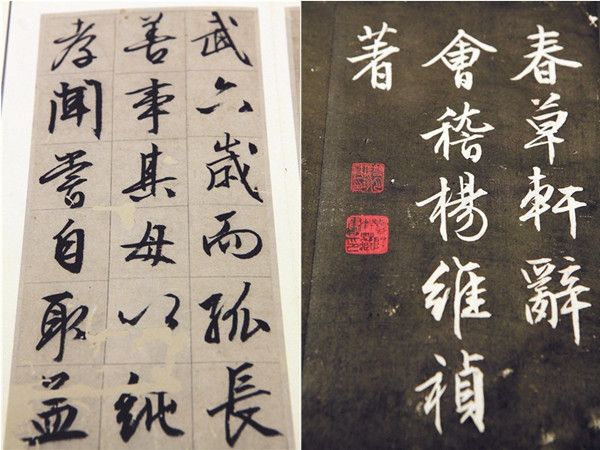 武六歲而孤長
善事其母以純
孝聞嘗自取孟
春草軒辭
會稽楊維禎
著